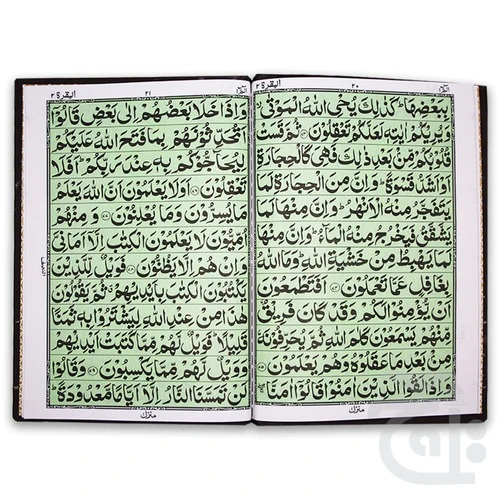 البقرة ٢ ٣٠
بِبَعْضِهَا ؕ كَذٰلِكَ يُحْيِ اللّٰهُ الْمَوْتٰى
وَيُرِيْكُمْ اٰيٰتِهٖ لَعَلَّكُمْ تَعْقِلُوْنَ ﴿۷۳﴾ ثُمَّ قَسَتْ
قُلُوْبُكُمْ مِّنْۢ بَعْدِ ذٰلِكَ فَهِيَ كَالْحِجَارَةِ
اَوْ اَشَدُّ قَسْوَةً ؕ وَاِنَّ مِنَ الْحِجَارَةِ لَمَا
يَتَفَجَّرُ مِنْهُ الْاَنْهٰرُ ؕ وَاِنَّ مِنْهَا لَمَا
يَشَّقَّقُ فَيَخْرُجُ مِنْهُ الْمَآءُ ؕ وَاِنَّ مِنْهَا
لَمَا يَهْبِطُ مِنْ خَشْيَةِ اللّٰهِ ؕ وَمَا اللّٰهُ
بِغَافِلٍ عَمَّا تَعْمَلُوْنَ ﴿۷۴﴾ اَفَتَطْمَعُوْنَ
اَنْ يُّؤْمِنُوْا لَكُمْ وَقَدْ كَانَ فَرِيْقٌ
مِّنْهُمْ يَسْمَعُوْنَ كَلٰمَ اللّٰهِ ثُمَّ يُحَرِّفُوْنَهٗ
مِنْۢ بَعْدِ مَا عَقَلُوْهُ وَهُمْ يَعْلَمُوْنَ ﴿۷۵﴾
وَاِذَا لَقُوا الَّذِيْنَ اٰمَنُوْا قَالُوْٓا اٰمَنَّا
منزل
البقرة ٢ ٣١
وَاِذَا خَلَا بَعْضُهُمْ اِلٰى بَعْضٍ قَالُوْٓا
اَتُحَدِّثُوْنَهُمْ بِمَا فَتَحَ اللّٰهُ عَلَيْكُمْ
لِيُحَآجُّوْكُمْ بِهٖ عِنْدَ رَبِّكُمْ ؕ اَفَلَا
تَعْقِلُوْنَ ﴿۷۶﴾ اَوَلَا يَعْلَمُوْنَ اَنَّ اللّٰهَ يَعْلَمُ
مَا يُسِرُّوْنَ وَمَا يُعْلِنُوْنَ ﴿۷۷﴾ وَمِنْهُمْ
اُمِّيُّوْنَ لَا يَعْلَمُوْنَ الْكِتٰبَ اِلَّآ اَمَانِيَّ
وَاِنْ هُمْ اِلَّا يَظُنُّوْنَ ﴿۷۸﴾ فَوَيْلٌ لِّلَّذِيْنَ
يَكْتُبُوْنَ الْكِتٰبَ بِاَيْدِيْهِمْ ثُمَّ يَقُوْلُوْنَ
هٰذَا مِنْ عِنْدِ اللّٰهِ لِيَشْتَرُوْا بِهٖ ثَمَنًا
قَلِيْلًا ؕ فَوَيْلٌ لَّهُمْ مِّمَّا كَتَبَتْ اَيْدِيْهِمْ
وَوَيْلٌ لَّهُمْ مِّمَّا يَكْسِبُوْنَ ﴿۷۹﴾ وَقَالُوْا
لَنْ تَمَسَّنَا النَّارُ اِلَّآ اَيَّامًا مَّعْدُوْدَةً ؕ
منزل